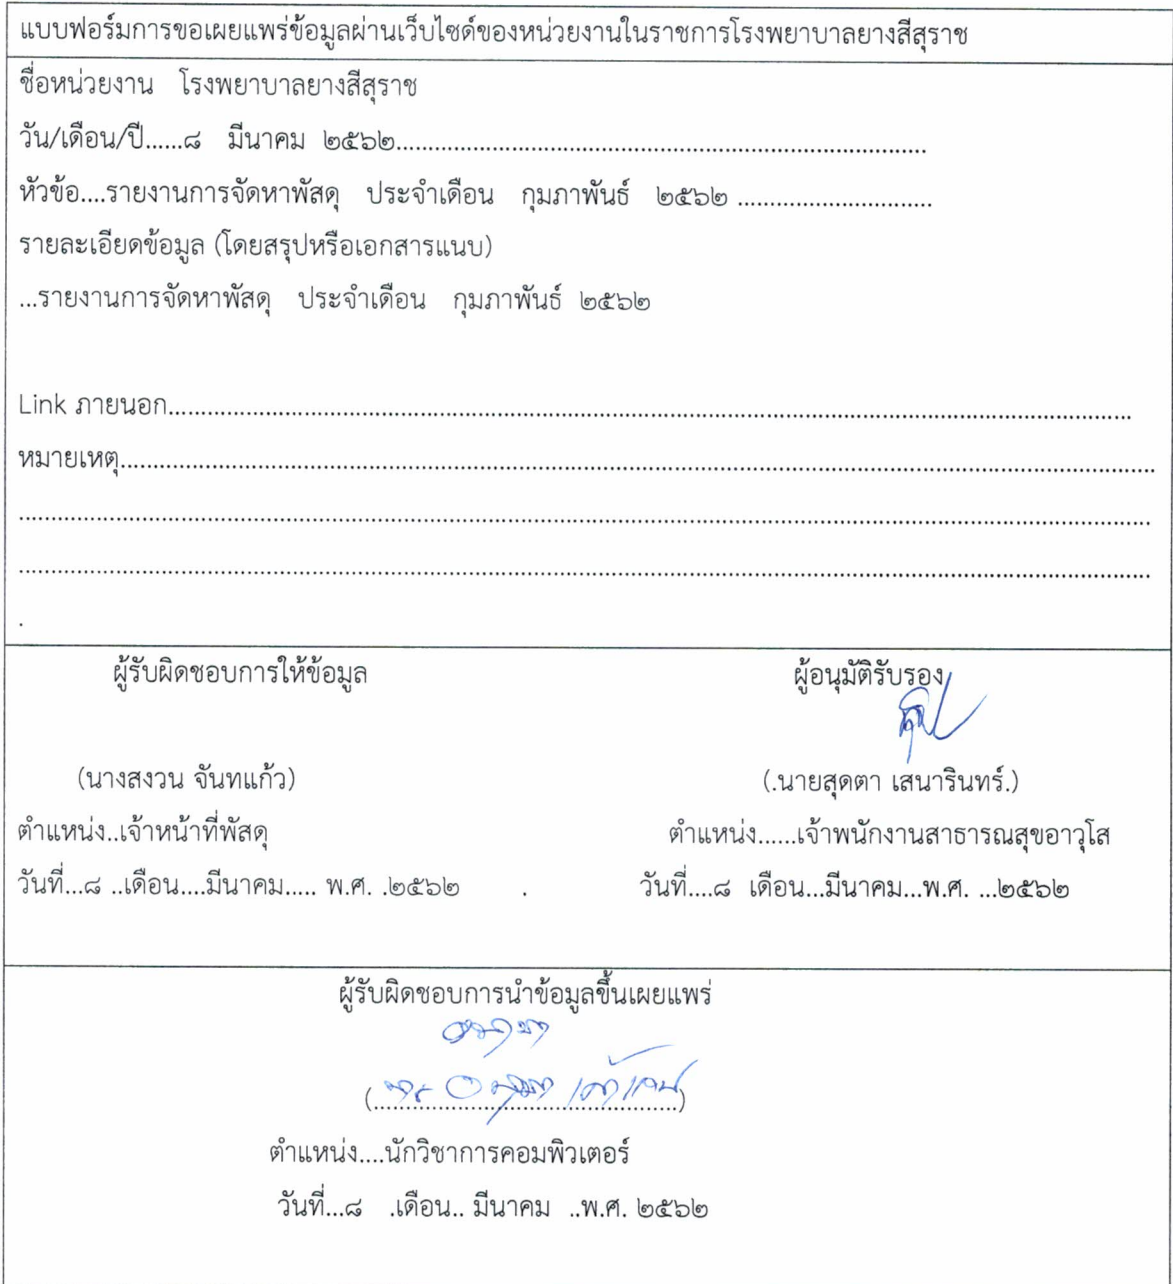 แบบฟอร์มการขอเผยแพร่ข้อมูลผ่านเว็บไซด์ของหน่วยงานในราชการโรงพยาบาลยางสีสุราช
ชื่อหน่วยงาน โรงพยาบาลยางสีสุราช
วัน/เดือน/ปี......๘ มีนาคม ๒๕๖๒..................................................................................
หัวข้อ....รายงานการจัดหาพัสดุ ประจำเดือน กุมภาพันธ์ ๒๕๖๒ ..............................
รายละเอียดข้อมูล (โดยสรุปหรือเอกสารแนบ)
...รายงานการจัดหาพัสดุ ประจำเดือน กุมภาพันธ์ ๒๕๖๒
Link ภายนอก....................................................................................................................................................
หมายเหตุ...............................................................................................................................................................
..............................................................................................................................................................................
..............................................................................................................................................................................
.
ผู้รับผิดชอบการให้ข้อมูล ผู้อนุมัติรับรอง
(นางสงวน จันทแก้ว) (.นายสุดตา เสนารินทร์.)
ตำแหน่ง..เจ้าหน้าที่พัสดุ ตำแหน่ง......เจ้าพนักงานสาธารณสุขอาวุโส
วันที่...๘ ..เดือน....มีนาคม..... พ.ศ. .๒๕๖๒ . วันที่....๘ เดือน...มีนาคม...พ.ศ. ...๒๕๖๒
ผู้รับผิดชอบการนำข้อมูลขึ้นเผยแพร่
(...............................................)
ตำแหน่ง....นักวิชาการคอมพิวเตอร์
วันที่...๘ .เดือน.. มีนาคม ..พ.ศ. ๒๕๖๒